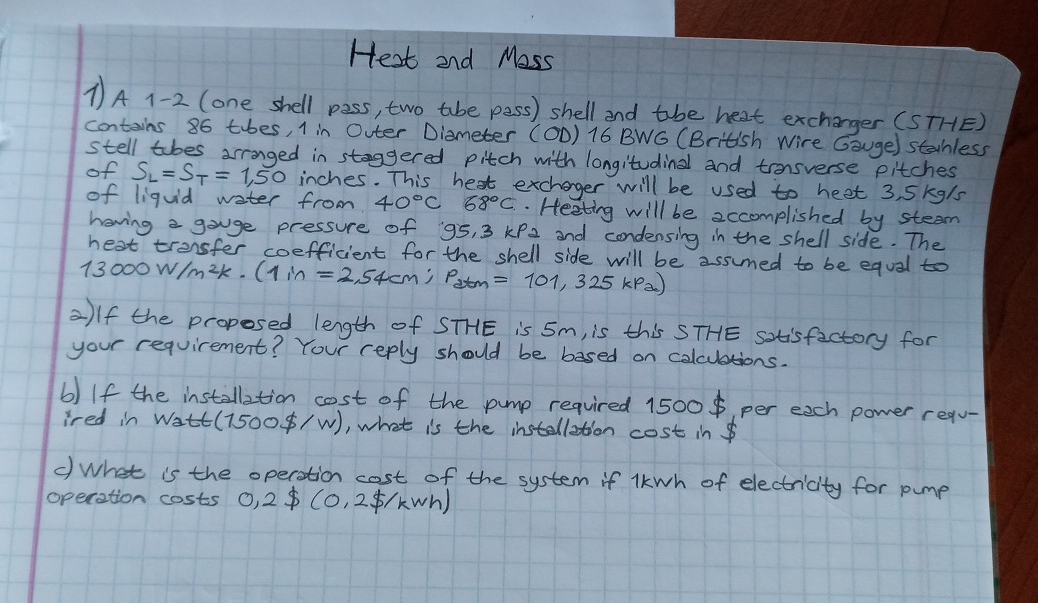 Heat and Mass
1) A 1-2 (one shell pass, two tube pass) shell and tube heat exchanger (STHE)
contains 86 tubes, 1 in Outer Diameter (OD) 16 BWG (British Wire Gauge) stainless
stell tubes arranged in staggered pitch with longitudinal and transverse pitches
of SL = ST = 1,50 inches. This heat exchager will be used to heat 3,5 kg/s
of liquid water from 40°C 68°C. Heating will be accomplished by steam
having a gauge pressure of 95,3 kPa and condensing in the shell side. The
heat transfer coefficient for the shell side will be assumed to be equal to
13000 W/m²k. (1 in = 2,54cm; Patm = 101,325 kPa)
a) If the proposed length of STHE is 5m, is this STHE satisfactory for
your requirement? Your reply should be based on calculations.
b) If the installation cost of the pump required 1500 $, per each power requ-
ired in Watt (1500$/W), what is the installation cost in $
c) What is the operation cost of the system if 1kwh of electricity for pump
operation costs 0,2 $ (0,2$/kwh)